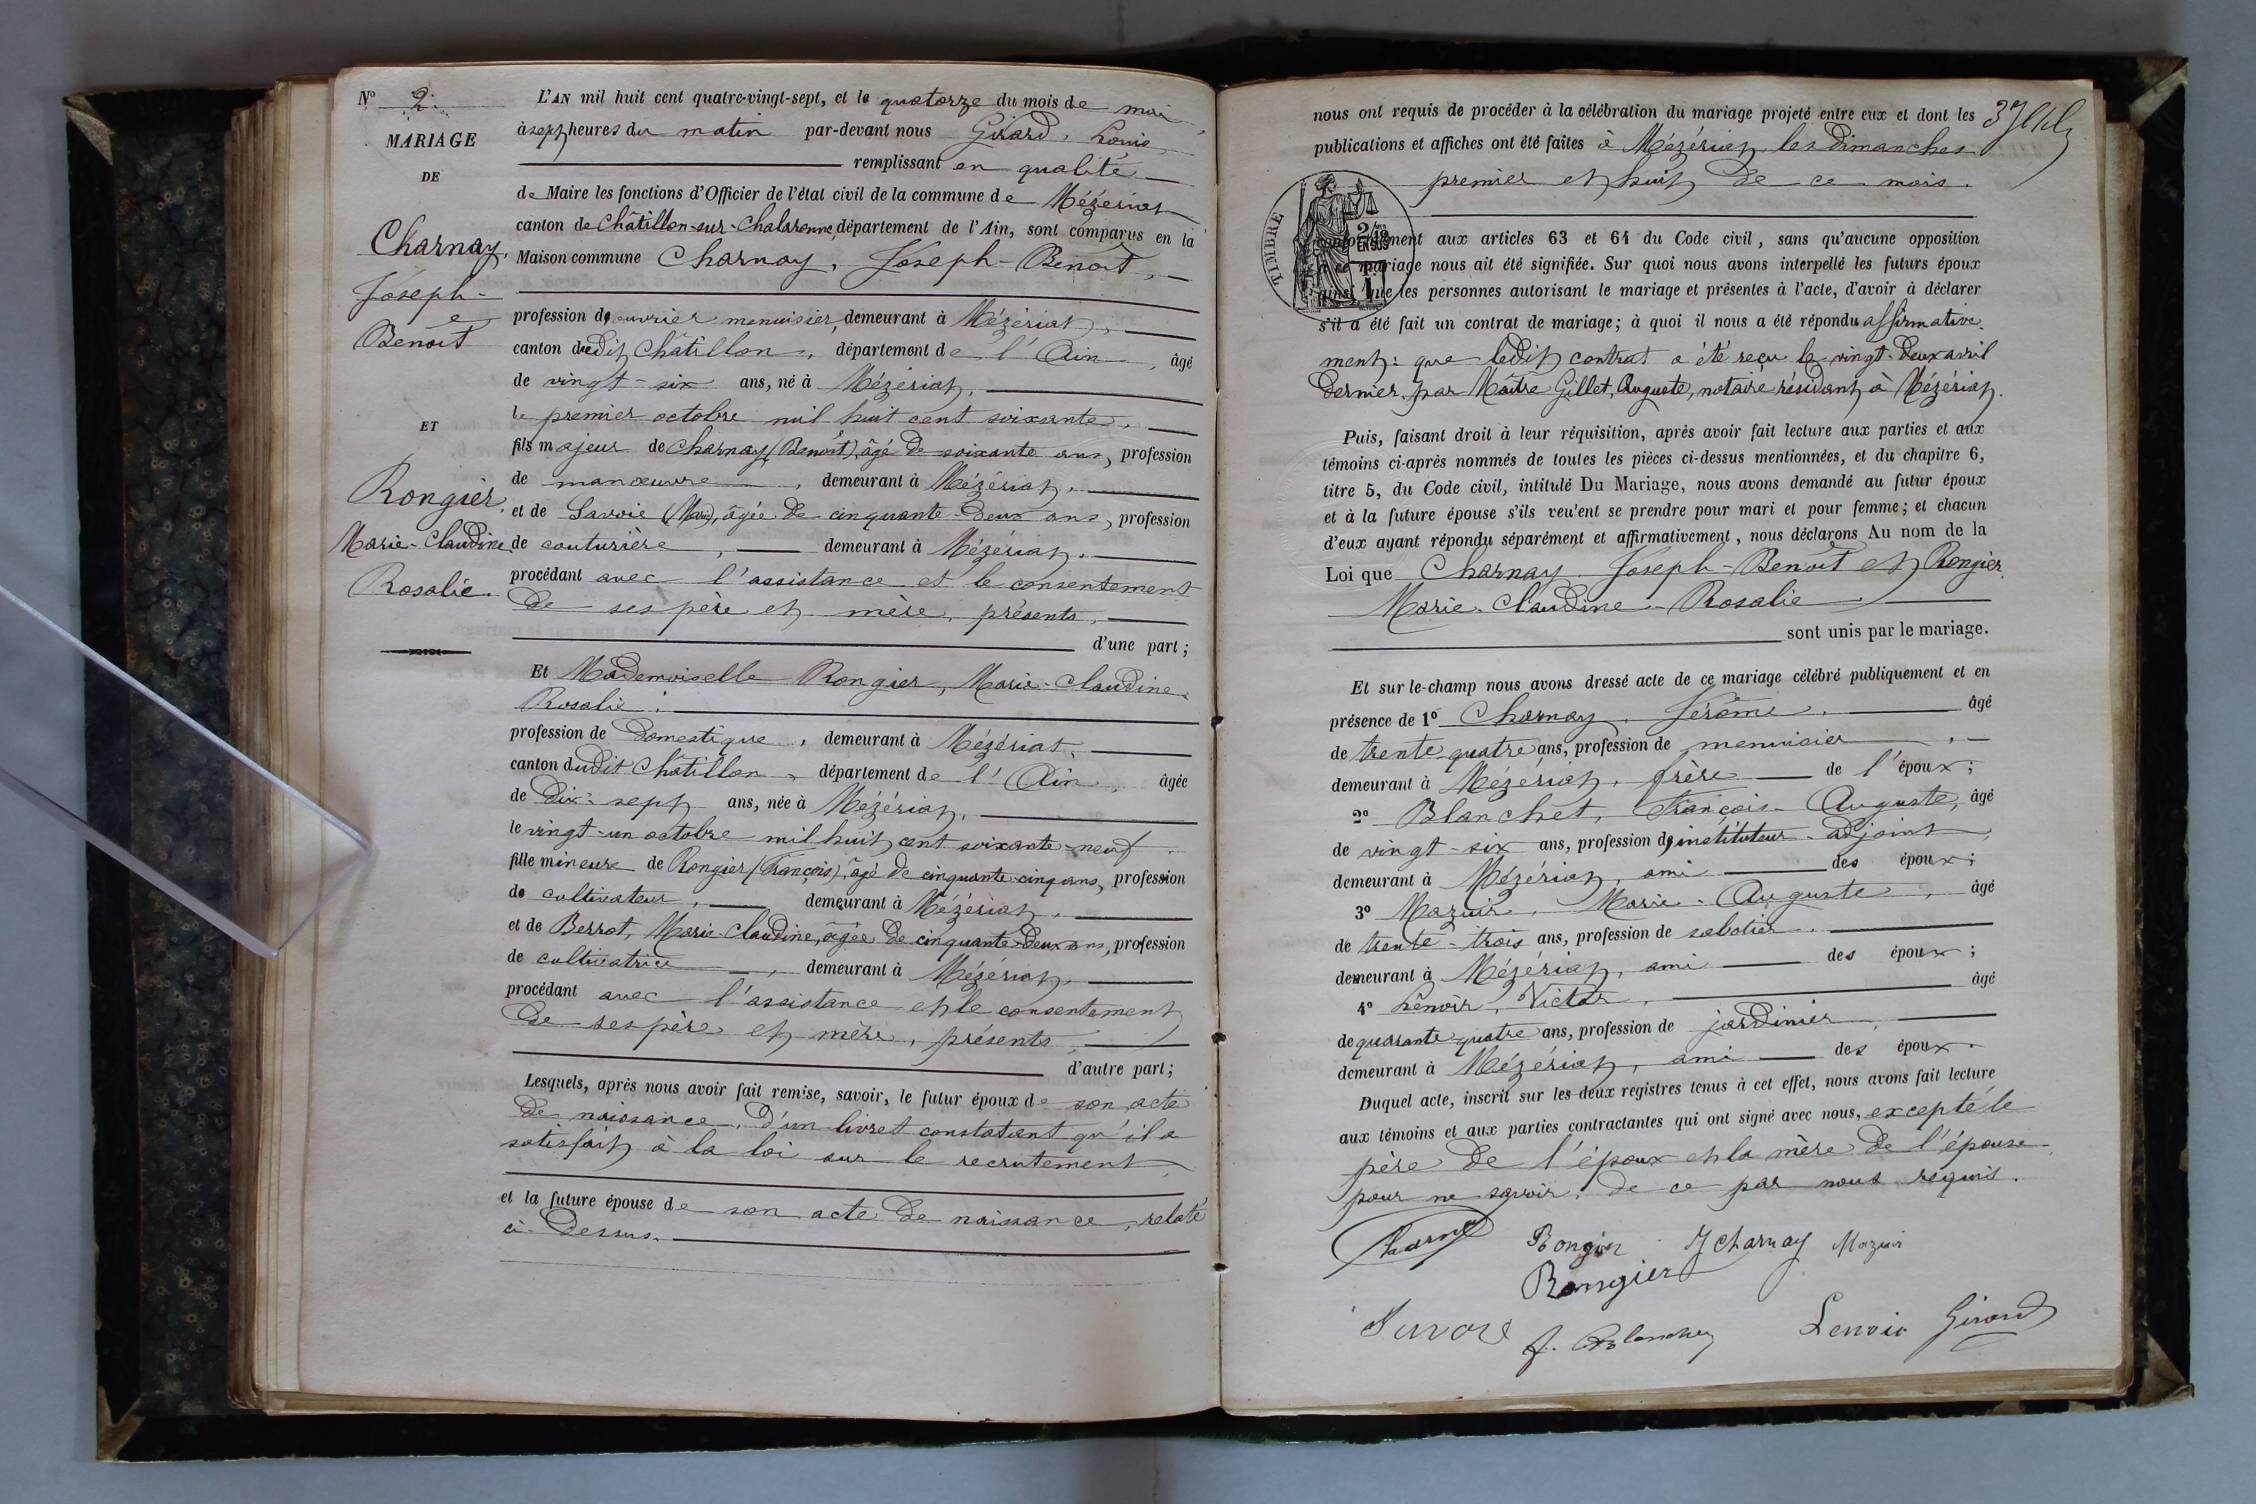 N° 2.
MARIAGE
DE
Charnay,
Joseph-
Benoît
ET
Rongier,
Marie-Claudine
Rosalie.
L'AN mil huit cent quatre-vingt-sept, et le quatorze du mois de mai,
à sept heures du matin par-devant nous Girard, Louis,
remplissant en qualité
de Maire les fonctions d'Officier de l'état civil de la commune de Mézériat
canton de Châtillon-sur-Chalaronne, département de l'Ain, sont comparus en la
Maison commune Charnay, Joseph-Benoît,
profession d'ouvrier menuisier, demeurant à Mézériat,
canton dudit Châtillon, département de l'Ain, âgé
de vingt-six ans, né à Mézériat,
le premier octobre mil huit cent soixante,
fils majeur de Charnay (Benoît), âgé de soixante ans, profession
de manœuvre, demeurant à Mézériat,
et de Savoie (Marie), âgée de cinquante-deux ans, profession
de couturière, demeurant à Mézériat,
procédant avec l'assistance et le consentement
de ses père et mère, présents,
d'une part;
Et Mademoiselle Rongier, Marie-Claudine
Rosalie,
profession de domestique, demeurant à Mézériat,
canton dudit Châtillon, département de l'Ain, âgée
de dix-sept ans, née à Mézériat,
le vingt-un octobre mil huit cent soixante-neuf,
fille mineure de Rongier (François), âgé de cinquante-cinq ans, profession
de cultivateur, demeurant à Mézériat,
et de Berrot, Marie-Claudine, âgée de cinquante-deux ans, profession
de cultivatrice, demeurant à Mézériat,
procédant avec l'assistance et le consentement
de ses père et mère, présents,
d'autre part;
Lesquels, après nous avoir fait remise, savoir, le futur époux de son acte
de naissance, d'un livret constatant qu'il a
satisfait à la loi sur le recrutement,
et la future épouse de son acte de naissance, relaté
ci-dessus.
nous ont requis de procéder à la célébration du mariage projeté entre eux et dont les
publications et affiches ont été faites à Mézériat, les dimanches
premier et huit de ce mois.
TIMBRE
2/10es
EN SUS
conformément aux articles 63 et 64 du Code civil, sans qu'aucune opposition
à ce mariage nous ait été signifiée. Sur quoi nous avons interpellé les futurs époux
ainsi que les personnes autorisant le mariage et présentes à l'acte, d'avoir à déclarer
s'il a été fait un contrat de mariage; à quoi il nous a été répondu affirmative-
ment: que ledit contrat a été reçu le vingt-deux avril
dernier, par Maître Gillet, Auguste, notaire résidant à Mézériat.
Puis, faisant droit à leur réquisition, après avoir fait lecture aux parties et aux
témoins ci-après nommés de toutes les pièces ci-dessus mentionnées, et du chapitre 6,
titre 5, du Code civil, intitulé Du Mariage, nous avons demandé au futur époux
et à la future épouse s'ils veu'ent se prendre pour mari et pour femme; et chacun
d'eux ayant répondu séparément et affirmativement, nous déclarons Au nom de la
Loi que Charnay, Joseph-Benoît et Rongier,
Marie-Claudine-Rosalie
sont unis par le mariage.
Et sur-le-champ nous avons dressé acte de ce mariage célébré publiquement et en
présence de 1° Charnay, Jérôme, âgé
de trente-quatre ans, profession de menuisier,
demeurant à Mézériat, frère de l'époux;
2° Blanchet, François-Auguste, âgé
de vingt-six ans, profession d'instituteur-adjoint,
demeurant à Mézériat, ami des époux;
3° Mazuir, Marie-Auguste, âgé
de trente-trois ans, profession de sabotier,
demeurant à Mézériat, ami des époux;
4° Lenoir, Victor, âgé
de quarante-quatre ans, profession de jardinier,
demeurant à Mézériat, ami des époux.
Duquel acte, inscrit sur les deux registres tenus à cet effet, nous avons fait lecture
aux témoins et aux parties contractantes qui ont signé avec nous, excepté le
père de l'époux et la mère de l'épouse
pour ne savoir, de ce par nous requis.
Charnay
Rongier
J Charnay
Mazuir
Rongier
f. Blanchet
Lenoir
Girard